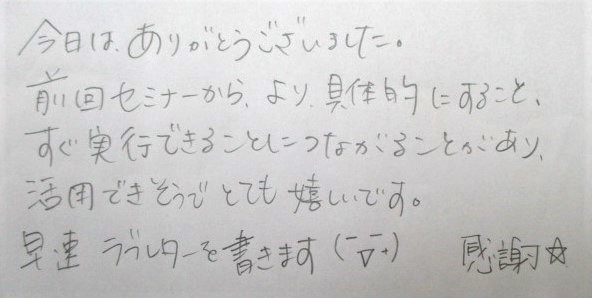 今日は、ありがとうございました。
前回セミナーから、より、具体的にすること、
すぐ実行できることにつながることがあり、
活用できそうで とても 嬉しいです。
早速 ラブレターを書きます (￣▽￣+) 感謝☆